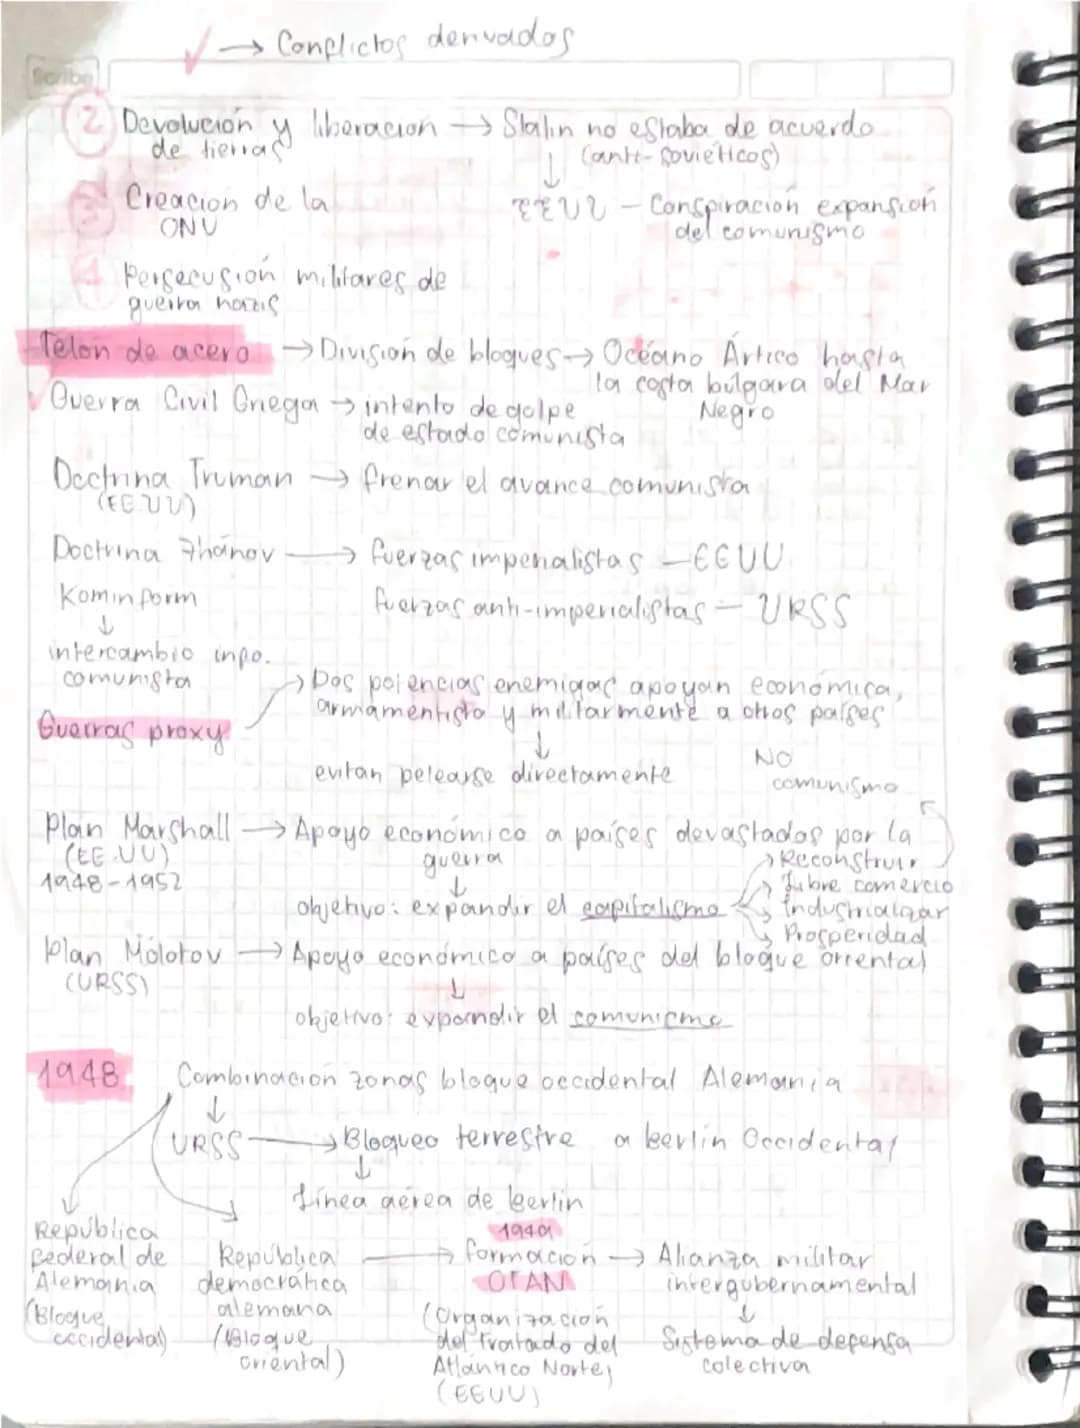 → Conflictos derivados
Scribe
2 Devolución y liberacion → Stalin no estaba de acuerdo
de tierras (anti-soviéticos)
↓
3 Creacion de la EEUU - Conspiración expansión
ONU del comunismo
4 Persecusión militares de
guerra nazis
Telón de acero → División de bloques → Océano Ártico hasta
la costa búlgara del Mar
Negro
Guerra Civil Griega → intento de golpe
de estado comunista
Doctrina Truman → frenar el avance comunista
(EEUU)
Doctrina Zhánov → fuerzas imperialistas - EEUU
Kominform fuerzas anti-imperialistas - URSS
↓
intercambio info.
comunista
Guerras proxy → Dos potencias enemigas apoyan económica,
armamentisto y militarmente a otros países
↓
evitan pelearse directamente
NO
comunismo
Plan Marshall → Apoyo económico a países devastados por la
(EE.UU) guerra
1948-1952 ↓
objetivo: expandir el capitalismo
→ Reconstruir
→ Libre comercio
→ Industrializar
→ Prosperidad
Plan Mólotov → Apoyo económico a países del bloque oriental
(URSS) ↓
objetivo: expandir el comunismo
1948 Combinación zonas bloque occidental Alemania
↓
URSS → Bloqueo terrestre a Berlín Occidental
↓
Línea aérea de Berlín
República
Federal de
Alemania
(Bloque
occidental)
República
democrática
alemana
(Bloque
oriental)
1949
→ formacion → Alianza militar
OTAN intergubernamental
(Organización ↓
del Tratado del Sistema de defensa
Atlántico Norte) colectiva
(EEUU)